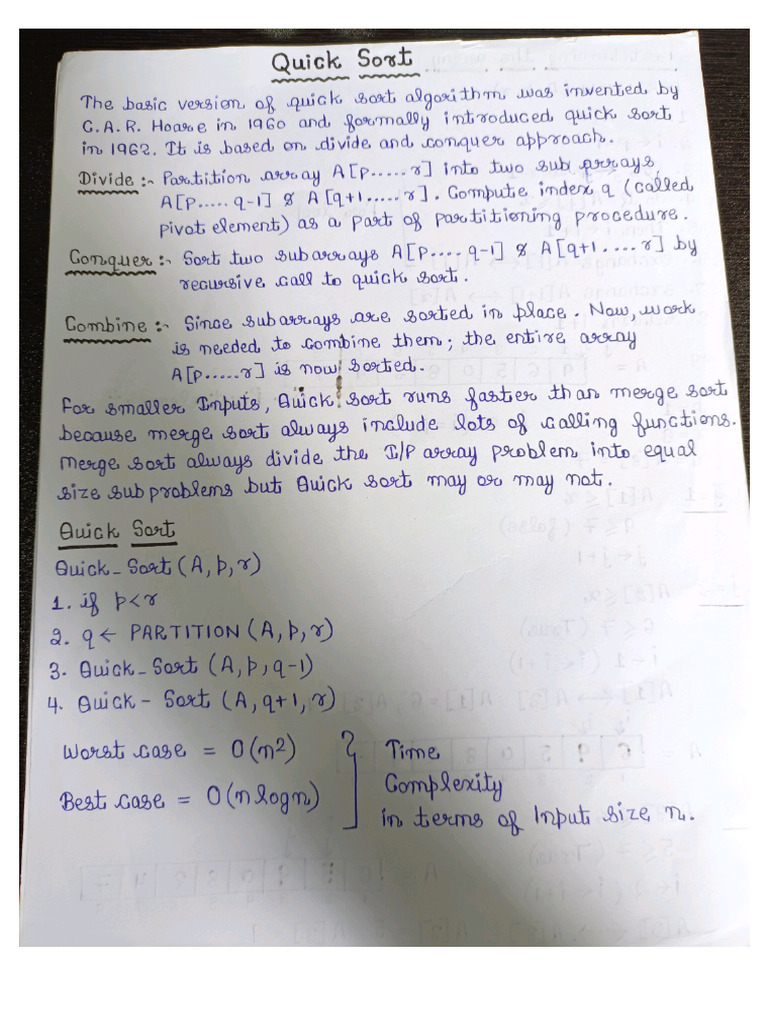 Quick Sort
The basic version of quick sort algorithm was invented by
C.A.R. Hoare in 1960 and formally introduced quick sort
in 1962. It is based on divide and conquer approach.
Divide :- Partition array A[p.....r] into two sub arrays,
A[p.....q-1] & A[q+1.....r]. Compute index q (called
pivot element) as a part of partitioning procedure.
Conquer :- Sort two subarrays A[p....q-1] & A[q+1....r] by
recursive call to quick sort.
Combine :- Since subarrays are sorted in place. Now, work
is needed to combine them; the entire array
A[p.....r] is now sorted.
For smaller Inputs, Quick sort runs faster than merge sort
because merge sort always include lots of calling functions.
Merge sort always divide the I/P array problem into equal
size subproblems but Quick sort may or may not.
Quick Sort
Quick_Sort (A, p, r)
1. if p<r
2. q ← PARTITION (A, p, r)
3. Quick_Sort (A, p, q-1)
4. Quick- Sort (A, q+1, r)
Worst case = O(n²)
Best case = O(n logn)
Time
Complexity
in terms of Input size n.